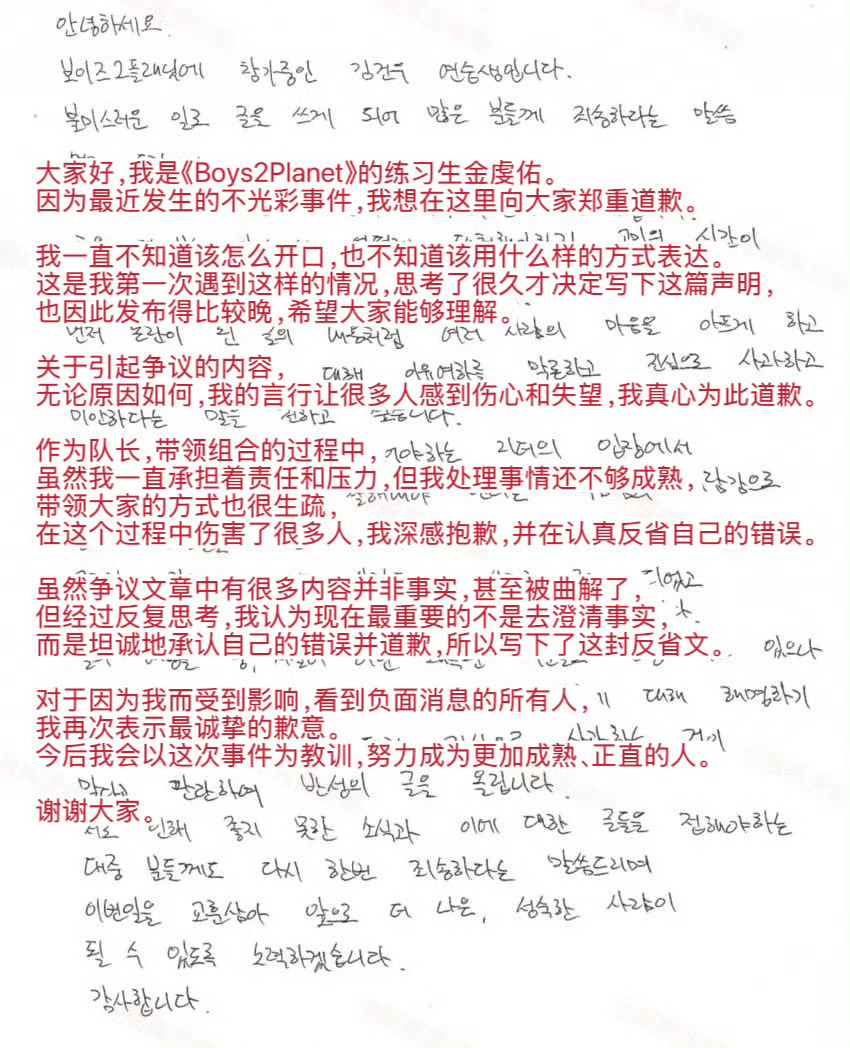 안녕하세요.
보이즈2플래닛에 참가중인 김건우 연습생입니다.
불미스러운 일로 글을 쓰게 되어 많은 분들께 죄송하라는 말씀
大家好,我是《Boys2Planet》的练习生金虔佑。
因为最近发生的不光彩事件,我想在这里向大家郑重道歉。
고민의 시간이
我一直不知道该怎么开口,也不知道该用什么样的方式表达。
这是我第一次遇到这样的情况,思考了很久才决定写下这篇声明,
也因此发布得比较晚,希望大家能够理解。
먼저 논란이 된 글의 내용처럼 여러 사람의 마음을 아프게 하고
关于引起争议的内容,
대해 이유여하를 막론하고 진심으로 사과하고
无论原因如何,我的言行让很多人感到伤心和失望,我真心为此道歉。
미안하다는 말을 전하고 싶습니다.
作为队长,带领组合的过程中,
야하는 리더의 입장에서
虽然我一直承担着责任和压力,但我处理事情还不够成熟,
带领大家的方式也很生疏,
在这个过程中伤害了很多人,我深感抱歉,并在认真反省自己的错误。
虽然争议文章中有很多内容并非事实,甚至被曲解了,
但经过反复思考,我认为现在最重要的不是去澄清事实,
而是坦诚地承认自己的错误并道歉,所以写下了这封反省文。
있으나
对于因为我而受到影响,看到负面消息的所有人,
대해 해명하기
我再次表示最诚挚的歉意。
今后我会以这次事件为教训,努力成为更加成熟、正直的人。
맞다고 판단하여 반성의 글을 올립니다.
谢谢大家。
저로 인해 좋지 못한 소식과 이에 대한 글들을 접해야하는
대중 분들께도 다시 한번 죄송하다는 말씀드리며
이번일을 교훈삼아 앞으로 더 나은, 성숙한 사람이
될 수 있도록 노력하겠습니다.
감사합니다.